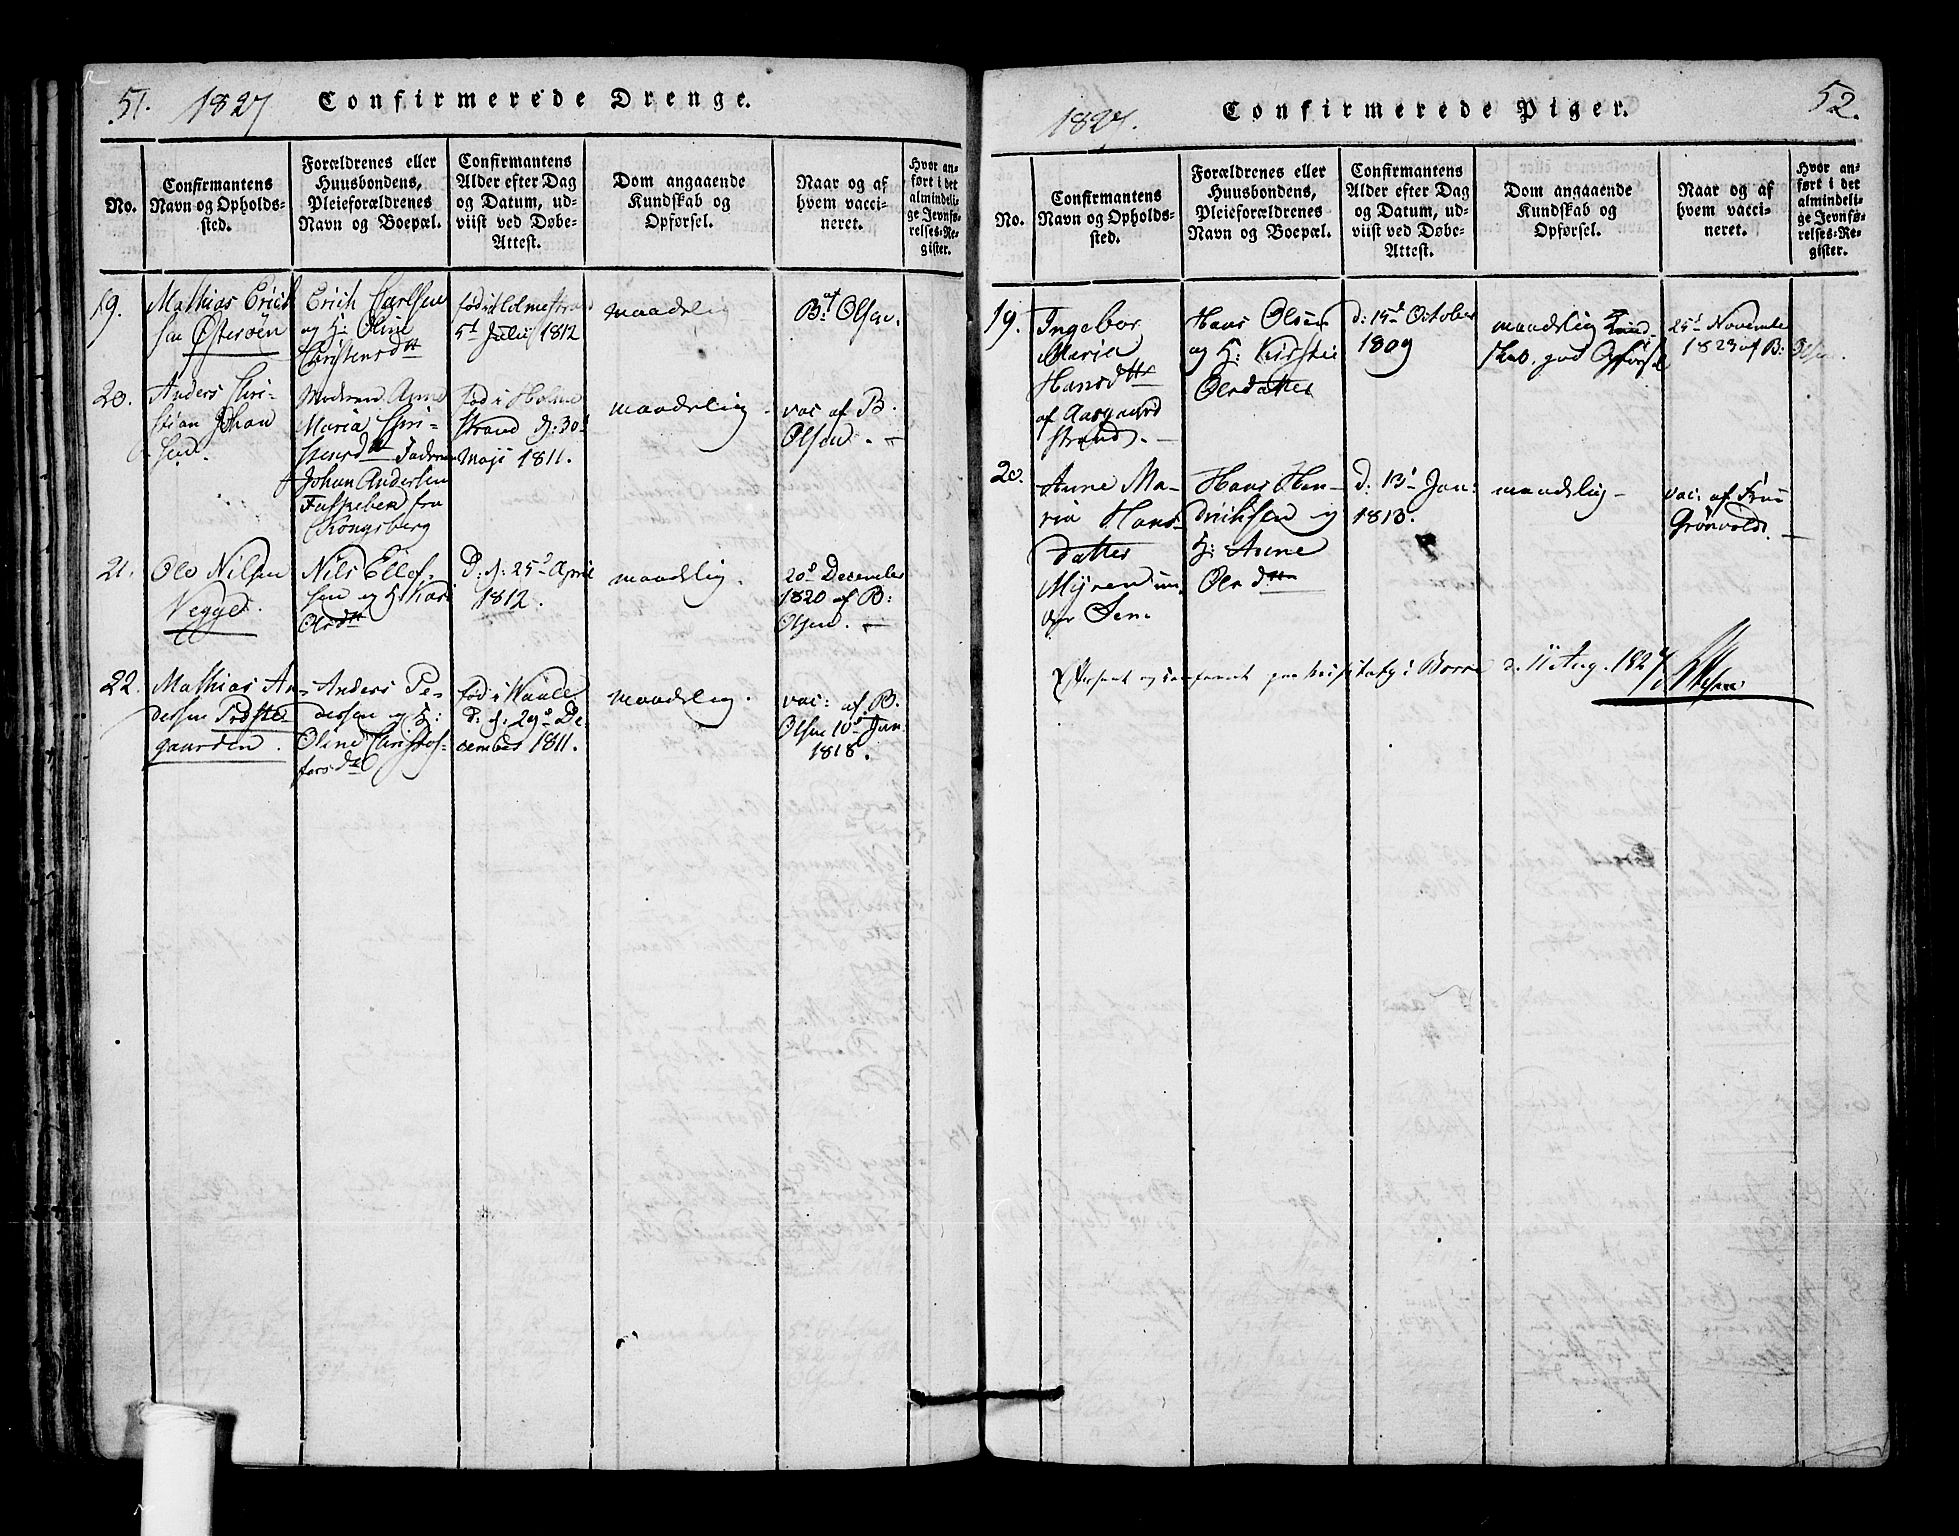 51. 1827 Confirmerede Drenge.
No.
Confirmantens
Navn og Opholds-
sted.
Forældrenes eller
Huusbondens,
Pleieforældrenes
Navn og Boepæl.
Confirmantens
Alder efter Dag
og Datum, ud-
viist ved Døbe-
Attest.
Dom angaaende
Kundskab og
Opførsel.
Naar og af
hvem vacci-
neret.
Hvor an-
ført i det
almindeli-
ge Jevnfø-
relses-Re-
gister.
19.
Mathias Erich
sen Østerøen
Erich Carlsen
og H: Oline
Christensdtt
fød i Holmestrand
5t Julij 1812
maadelig
af
B: Olsen.
20.
Anders Chri-
stian Johan
sen.
Moderen Anne
Maria Chri-
stensdtt Faderen
Johan Andersen
fra
Kongsberg
fød i Holme
strand d: 30t
Maji 1811.
maadelig
vac af B.
Olsen. —
21.
Ole Nilsen
Vegger.
Nils Ellef-
sen og H: Kari
Olsdtt
D: d: 25d April
1812.
maadelig.
20d December
1820 af B:
Olsen. —
22.
Mathias An-
dersen Præste
gaarden.
Anders Pe-
dersen og H:
Oline Christof-
fersdtt
fød i Vaale
D: d: 29d De-
cember 1811.
maadelig.
vac: af B.
Olsen 10d Jan
1818.
1827. Confirmerede Piger. 52.
No.
Confirmantens
Navn og Opholds-
sted.
Forældrenes eller
Huusbondens,
Pleieforældrenes
Navn og Boepæl.
Confirmantens
Alder efter Dag
og Datum, ud-
viist ved Døbe-
Attest.
Dom angaaende
Kundskab og
Opførsel.
Naar og af
hvem vacci-
neret.
Hvor an-
ført i det
almindeli-
ge Jevnfø-
relses-Re-
gister.
19.
Ingebor
Maria
Hansdtt
af Aasgaard
strand. —
Hans Olsen
og H: Kirstie
Olsdatter
d: 15d October
1809
maadelig Kund-
skab, god Opførsel
25d Novembr
1823 af B: Olsen
20.
Anne Ma-
ria Hans-
datter
Myren un-
der Sem.
Hans Hen-
drichsen og
H: Anne
Olsdtt
D: 13d Jan:
1813.
maadelig —
vac: af Fru
Grönvold. —
og i Borre d. 11 Aug. 1827